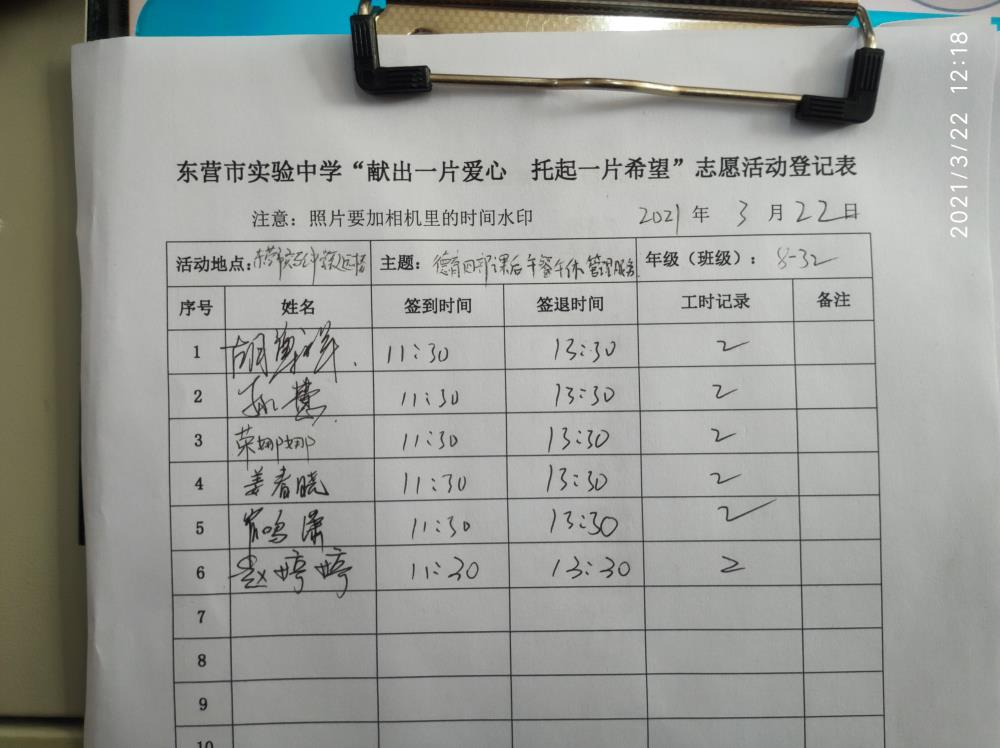 2021/3/22 12:18
东营市实验中学“献出一片爱心 托起一片希望”志愿活动登记表
注意：照片要加相机里的时间水印 2021年3月22日
活动地点： 主题：德育四部课后午餐午休管理服务 年级（班级）：8-32
序号 姓名 签到时间 签退时间 工时记录 备注
1 胡 11:30 13:30 2
2 11:30 13:30 2
3 荣娜娜 11:30 13:30 2
4 姜春晓 11:30 13:30 2
5 鸣潇 11:30 13:30 2
6 赵婷婷 11:30 13:30 2
7
8
9
10